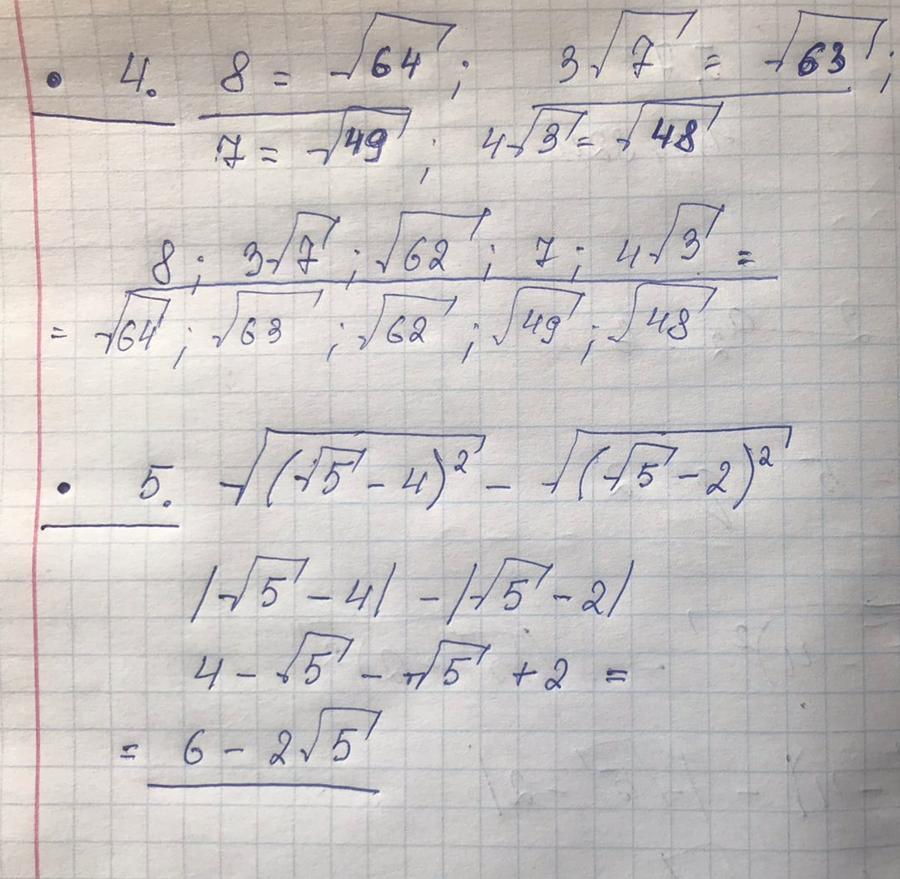 • 4. 8 = √64 ; 3√7 = √63 ;
7 = √49 ; 4√3 = √48
8 ; 3√7 ; √62 ; 7 ; 4√3 =
= √64 ; √63 ; √62 ; √49 ; √48
• 5. √(√5 - 4)² - √(√5 - 2)²
|√5 - 4| - |√5 - 2|
4 - √5 - √5 + 2 =
= 6 - 2√5